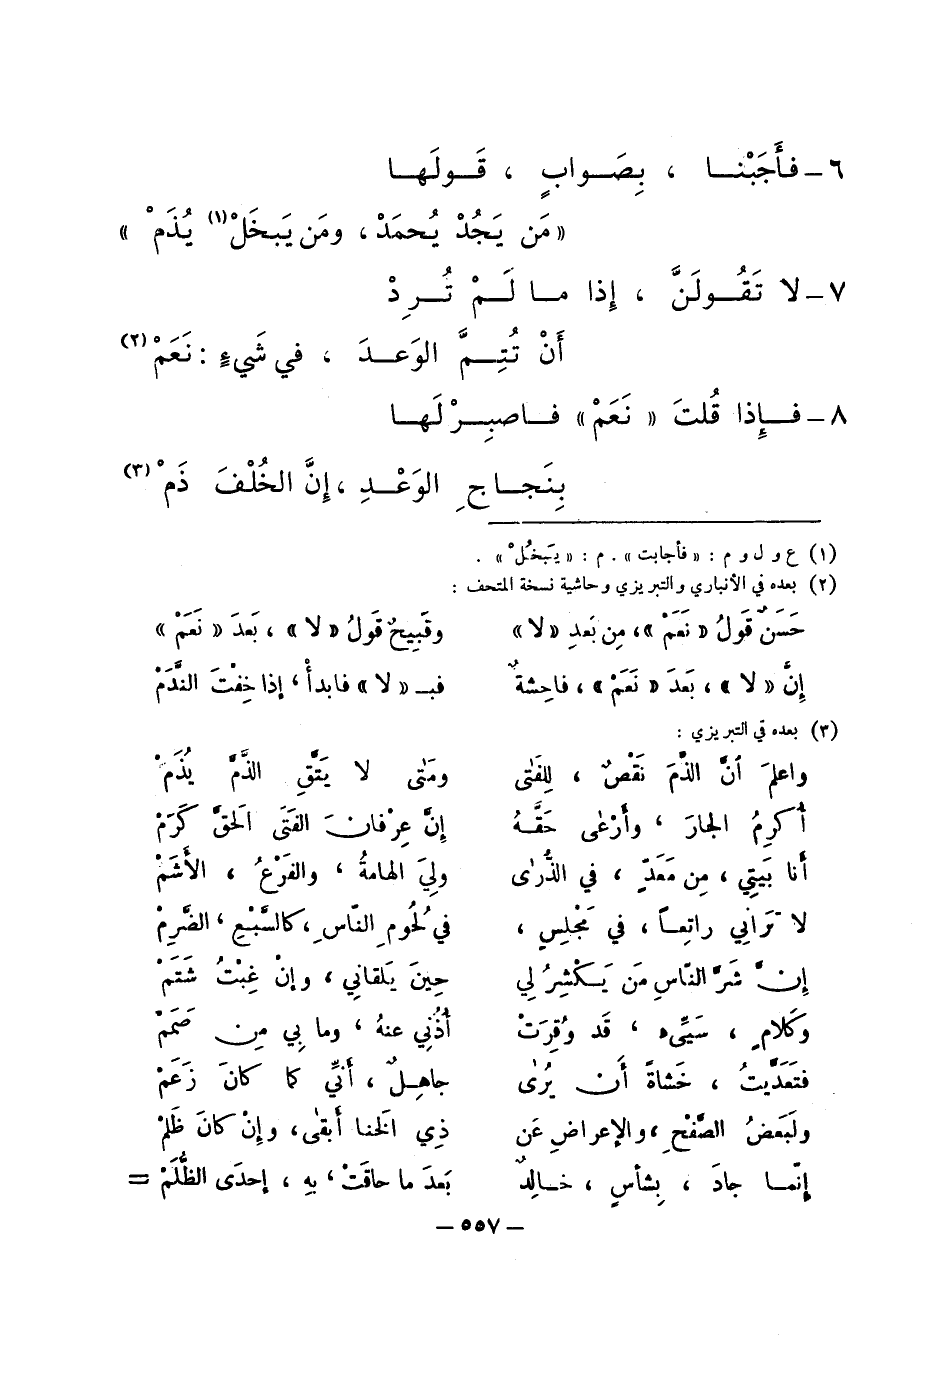 ٦ – فأَجَبْنا ، بِصَوابٍ ، قَولَها
« مَن يَجُدْ يُحمَدْ ، ومَن يَبخَلْ(١) يُذَمْ »
٧ – لا تَقُولَنَّ ، إذا ما لَمْ تُرِدْ
أَنْ تُتِمَّ الوَعدَ ، في شَيءٍ : نَعَمْ(٢)
٨ – فإِذا قُلتَ « نَعَمْ » فاصبِرْ لَها
بِنَجاحِ الوَعْدِ ، إِنَّ الخُلْفَ ذَمْ(٣)
(١) ع و ل و م : « فأجابت » . م : « يَبخُلْ » .
(٢) بعده في الأنباري والتبريزي وحاشية نسخة المتحف :
حَسَنٌ قَولُ « نَعَمْ » ، مِن بَعدِ « لا » وقَبِيحٌ قَولُ « لا » ، بَعدَ « نَعَمْ »
إنَّ « لا » ، بَعدَ « نَعَمْ » ، فاحِشةٌ فبـ « لا » فابدأْ ، إذا خِفْتَ النَّدَمْ
(٣) بعده في التبريزي :
واعلَمَ أنَّ الذَّمَّ نَقْصٌ ، لِلفَتٰى ومَتٰى لا يَتَّقِ الذَّمَّ يُذَمْ
أُكرِمُ الجارَ ، وأَرْعٰى حَقَّهُ إنَّ عِرْفانَ الفَتَى الحَقَّ كَرَمْ
أنا بَيتِي ، مِن مَعَدٍّ ، في الذُّرٰى ولِيَ الهامةُ ، والفَرْعُ ، الأَشَمْ
لا تَرانِي راتِعاً ، في مَجْلِسٍ ، في لُحُومِ النّاسِ ، كالسَّبْعِ ، الضَّرِمْ
إنَّ شَرَّ النّاسِ مَن يَكْشِرُ لِي حِينَ يَلقانِي ، وإنْ غِبْتُ شَتَمْ
وكَلامٍ ، سَيِّىءٍ ، قَد وُقِرَتْ أُذُنِي عنهُ ، وما بِي مِن صَمَمْ
فتَعَدَّيتُ ، خَشاةً أَن يُرٰى جاهِلٌ ، أَنِّي كما كانَ زَعَمْ
ولَبَعضُ الصَّفْحِ ، والإعراضِ عَن ذِي الخَنا أَبقٰى ، وإنْ كانَ ظَلَمْ
إنّما جادَ ، بِشأسٍ ، خالِدٌ بَعدَ ما حاقَتْ ، بِهِ ، إحدَى الظُّلَمْ =
– ٥٥٧ –